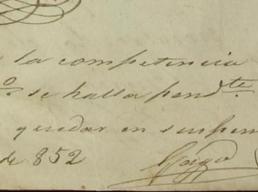 la competencia
o. se halla pendte.
quedar en suspen
de 852